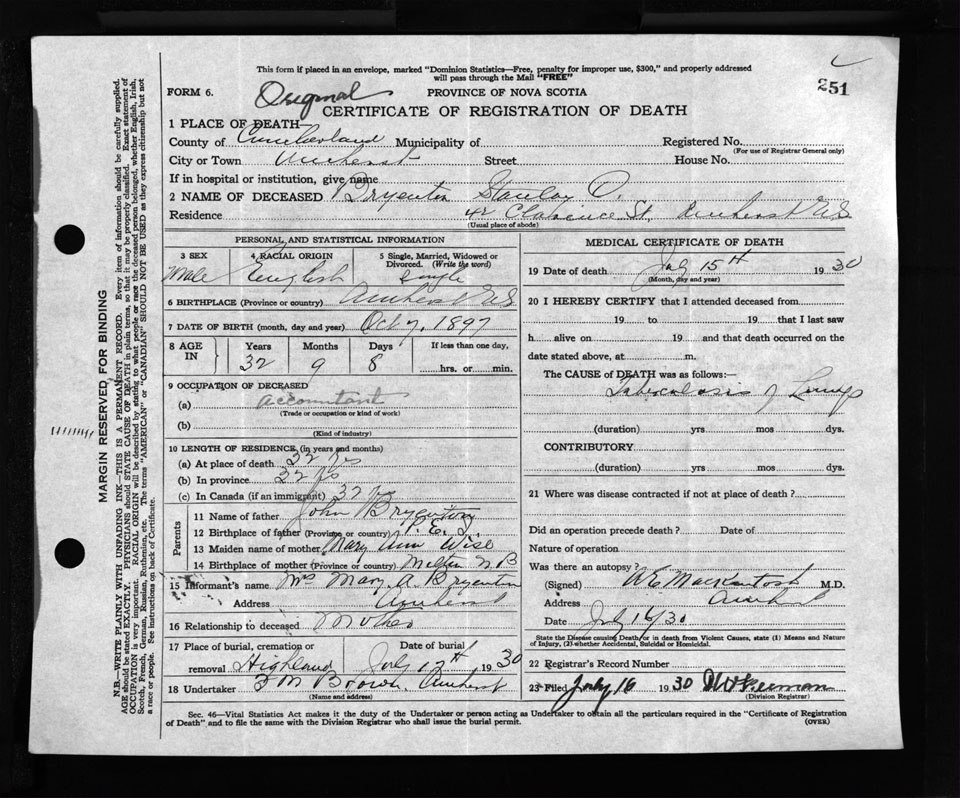 This form if placed in an envelope, marked "Dominion Statistics—Free, penalty for improper use, $300," and properly addressed
will pass through the Mail "FREE"
251
FORM 6. Original PROVINCE OF NOVA SCOTIA
CERTIFICATE OF REGISTRATION OF DEATH
1 PLACE OF DEATH—
County of Cumberland Municipality of Registered No.
(For use of Registrar General only)
City or Town Amherst Street House No.
If in hospital or institution, give name
2 NAME OF DECEASED Bryenton Stanley O.
Residence 42 Clarence St. Amherst NS
(Usual place of abode)
PERSONAL AND STATISTICAL INFORMATION
3 SEX 4 RACIAL ORIGIN 5 Single, Married, Widowed or
Divorced. (Write the word)
Male English Single
6 BIRTHPLACE (Province or country) Amherst NS
7 DATE OF BIRTH (month, day and year) Oct 7, 1897
8 AGE IN Years Months Days If less than one day,
32 9 8 hrs. or min.
9 OCCUPATION OF DECEASED
(a) accountant
(Trade or occupation or kind of work)
(b)
(Kind of industry)
10 LENGTH OF RESIDENCE (in years and months)
(a) At place of death 32 yrs
(b) In province 32 yrs
(c) In Canada (if an immigrant) 32 yrs
Parents
11 Name of father John Bryenton
12 Birthplace of father (Province or country) P. E. I.
13 Maiden name of mother Mary Ann Wise
14 Birthplace of mother (Province or country) N B
15 Informant's name Mrs Mary A Bryenton
Address Amherst
16 Relationship to deceased Mother
17 Place of burial, cremation or Date of burial
removal Highland July 17th, 1930
18 Undertaker Brown. Amherst
(Name and address)
MEDICAL CERTIFICATE OF DEATH
19 Date of death July 15th 1930
(Month, day and year)
20 I HEREBY CERTIFY that I attended deceased from
19 to 19 that I last saw
h alive on 19 and that death occurred on the
date stated above, at m.
The CAUSE of DEATH was as follows:
Tuberculosis of Lungs
(duration) yrs mos dys.
CONTRIBUTORY
(duration) yrs mos dys.
21 Where was disease contracted if not at place of death?
Did an operation precede death? Date of
Nature of operation
Was there an autopsy?
(Signed) MacKintosh M.D.
Address Amherst
Date July 16/30
State the Disease causing Death, or in death from Violent Causes, state (1) Means and Nature
of Injury, (2) whether Accidental, Suicidal or Homicidal.
22 Registrar's Record Number
23 Filed July 16 1930 Freeman
(Division Registrar)
Sec. 46—Vital Statistics Act makes it the duty of the Undertaker or person acting as Undertaker to obtain all the particulars required in the "Certificate of Registration
of Death" and to file the same with the Division Registrar who shall issue the burial permit. (OVER)
MARGIN RESERVED FOR BINDING
N.B.—WRITE PLAINLY WITH UNFADING INK—THIS IS A PERMANENT RECORD. Every item of information should be carefully supplied.
AGE should be stated EXACTLY. PHYSICIANS should STATE CAUSE OF DEATH in plain terms, so that it may be properly classified. Exact statement of
OCCUPATION is very important. RACIAL ORIGIN will be described by stating to what people or race the deceased person belonged, whether English, Irish,
Scotch, French, German, Russian, Ruthenian, etc. The terms "AMERICAN" or "CANADIAN" SHOULD NOT BE USED as they express citizenship but not
a race or people. See instructions on back of Certificate.